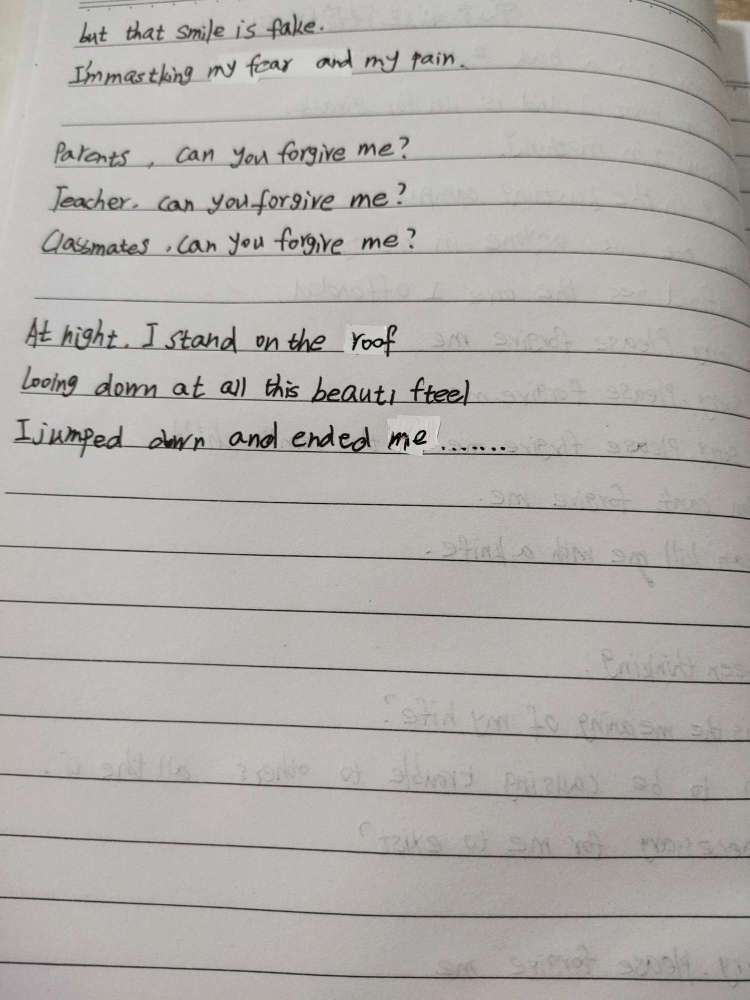 but that smile is fake.
I'm mastking my fear and my pain.
Parents, can you forgive me?
Teacher. can you forgive me?
Classmates, can you forgive me?
At night. I stand on the roof
Looing down at all this beauti fteel
I jumped down and ended me.......